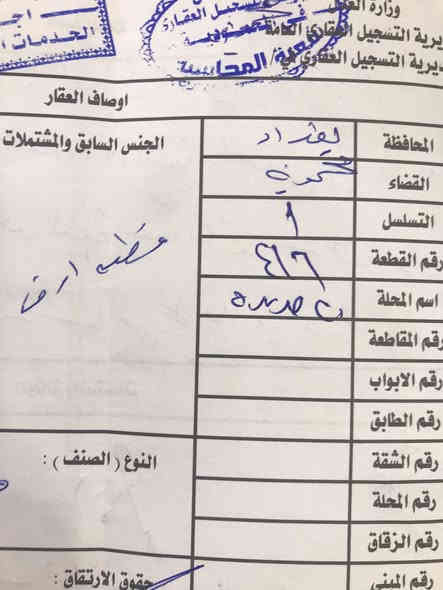 وزارة العدل
مديرية التسجيل العقاري العامة
مديرية التسجيل العقاري في
الخدمات
شعبة المحاسبة
اوصاف العقار
المحافظة بغداد
الجنس السابق والمشتملات
القضاء محمودية
التسلسل ١
رقم القطعة ٤١٦
قطعة ارض
اسم المحلة
رقم المقاطعة
رقم الابواب
رقم الطابق
رقم الشقة
النوع (الصنف) :
رقم المحلة
رقم الزقاق
رقم المبنى
حقوق الارتقاق :